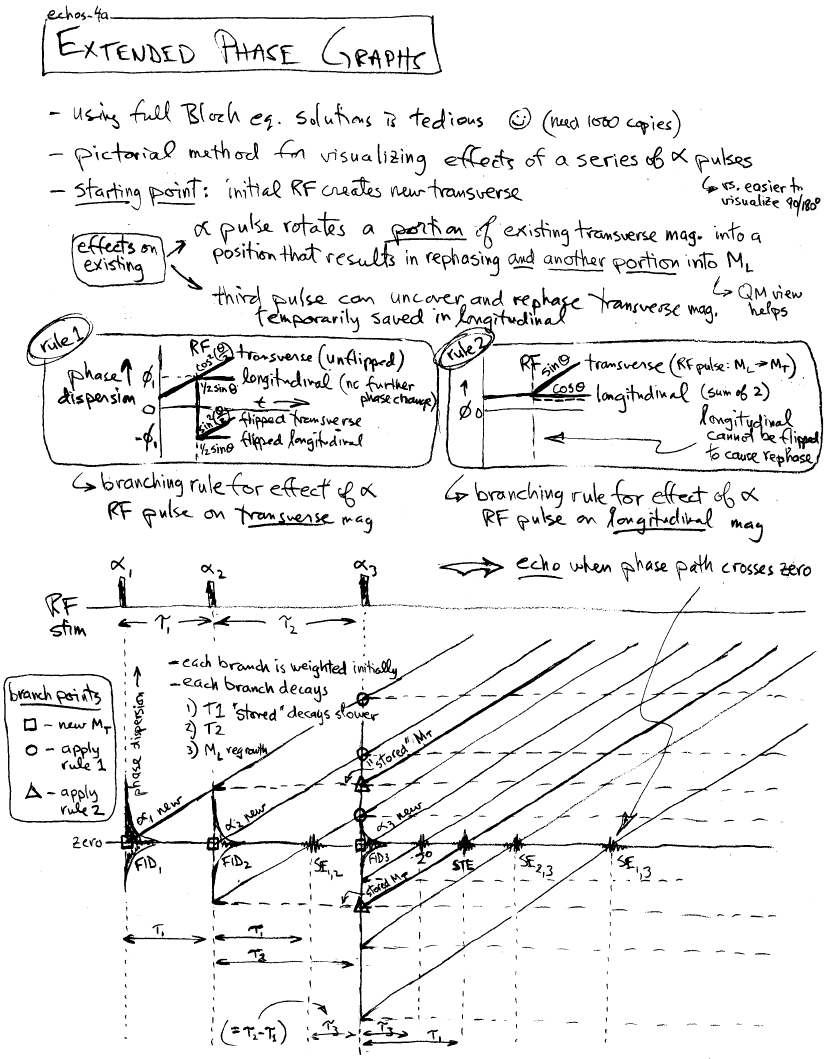 echos-4a
EXTENDED PHASE GRAPHS
- using full Bloch eq. solutions is tedious ☺ (need 1000 copies)
- pictorial method for visualizing effects of a series of α pulses
↳ vs. easier to
visualize 90/180°
- starting point: initial RF creates new transverse
effects on
existing
α pulse rotates a portion of existing transverse mag. into a
position that results in rephasing and another portion into M_L
↳ QM view
helps
third pulse can uncover and rephase transverse mag.
temporarily saved in longitudinal
rule 1
phase ↑
dispersion
φ₁
0
-φ₁
RF
cos²(θ/2)
transverse (unflipped)
1/2 sinθ
longitudinal (no further
phase change)
t →
sin²(θ/2)
flipped transverse
1/2 sinθ
flipped longitudinal
rule 2
↑
φ
0
RF
sinθ
transverse (RF pulse: M_L → M_T)
cosθ
longitudinal (sum of 2)
longitudinal
cannot be flipped
to cause rephase
↳ branching rule for effect of α
RF pulse on transverse mag
↳ branching rule for effect of α
RF pulse on longitudinal mag
⇒ echo when phase path crosses zero
α₁
α₂
α₃
RF
stim
τ₁
τ₂
- each branch is weighted initially
- each branch decays
1) T1 "stored" decays slower
2) T2
3) M_L regrowth
branch points
□ - new M_T
○ - apply
rule 1
△ - apply
rule 2
phase dispersion →
"stored" M_T
α₁ new
α₂ new
α₃ new
zero
FID₁
FID₂
SE₁,₂
FID₃
2°
STE
SE₂,₃
SE₁,₃
stored M_T
τ₁
τ₁
τ₂
(= τ₂-τ₁)
τ₃
τ₃
τ₁